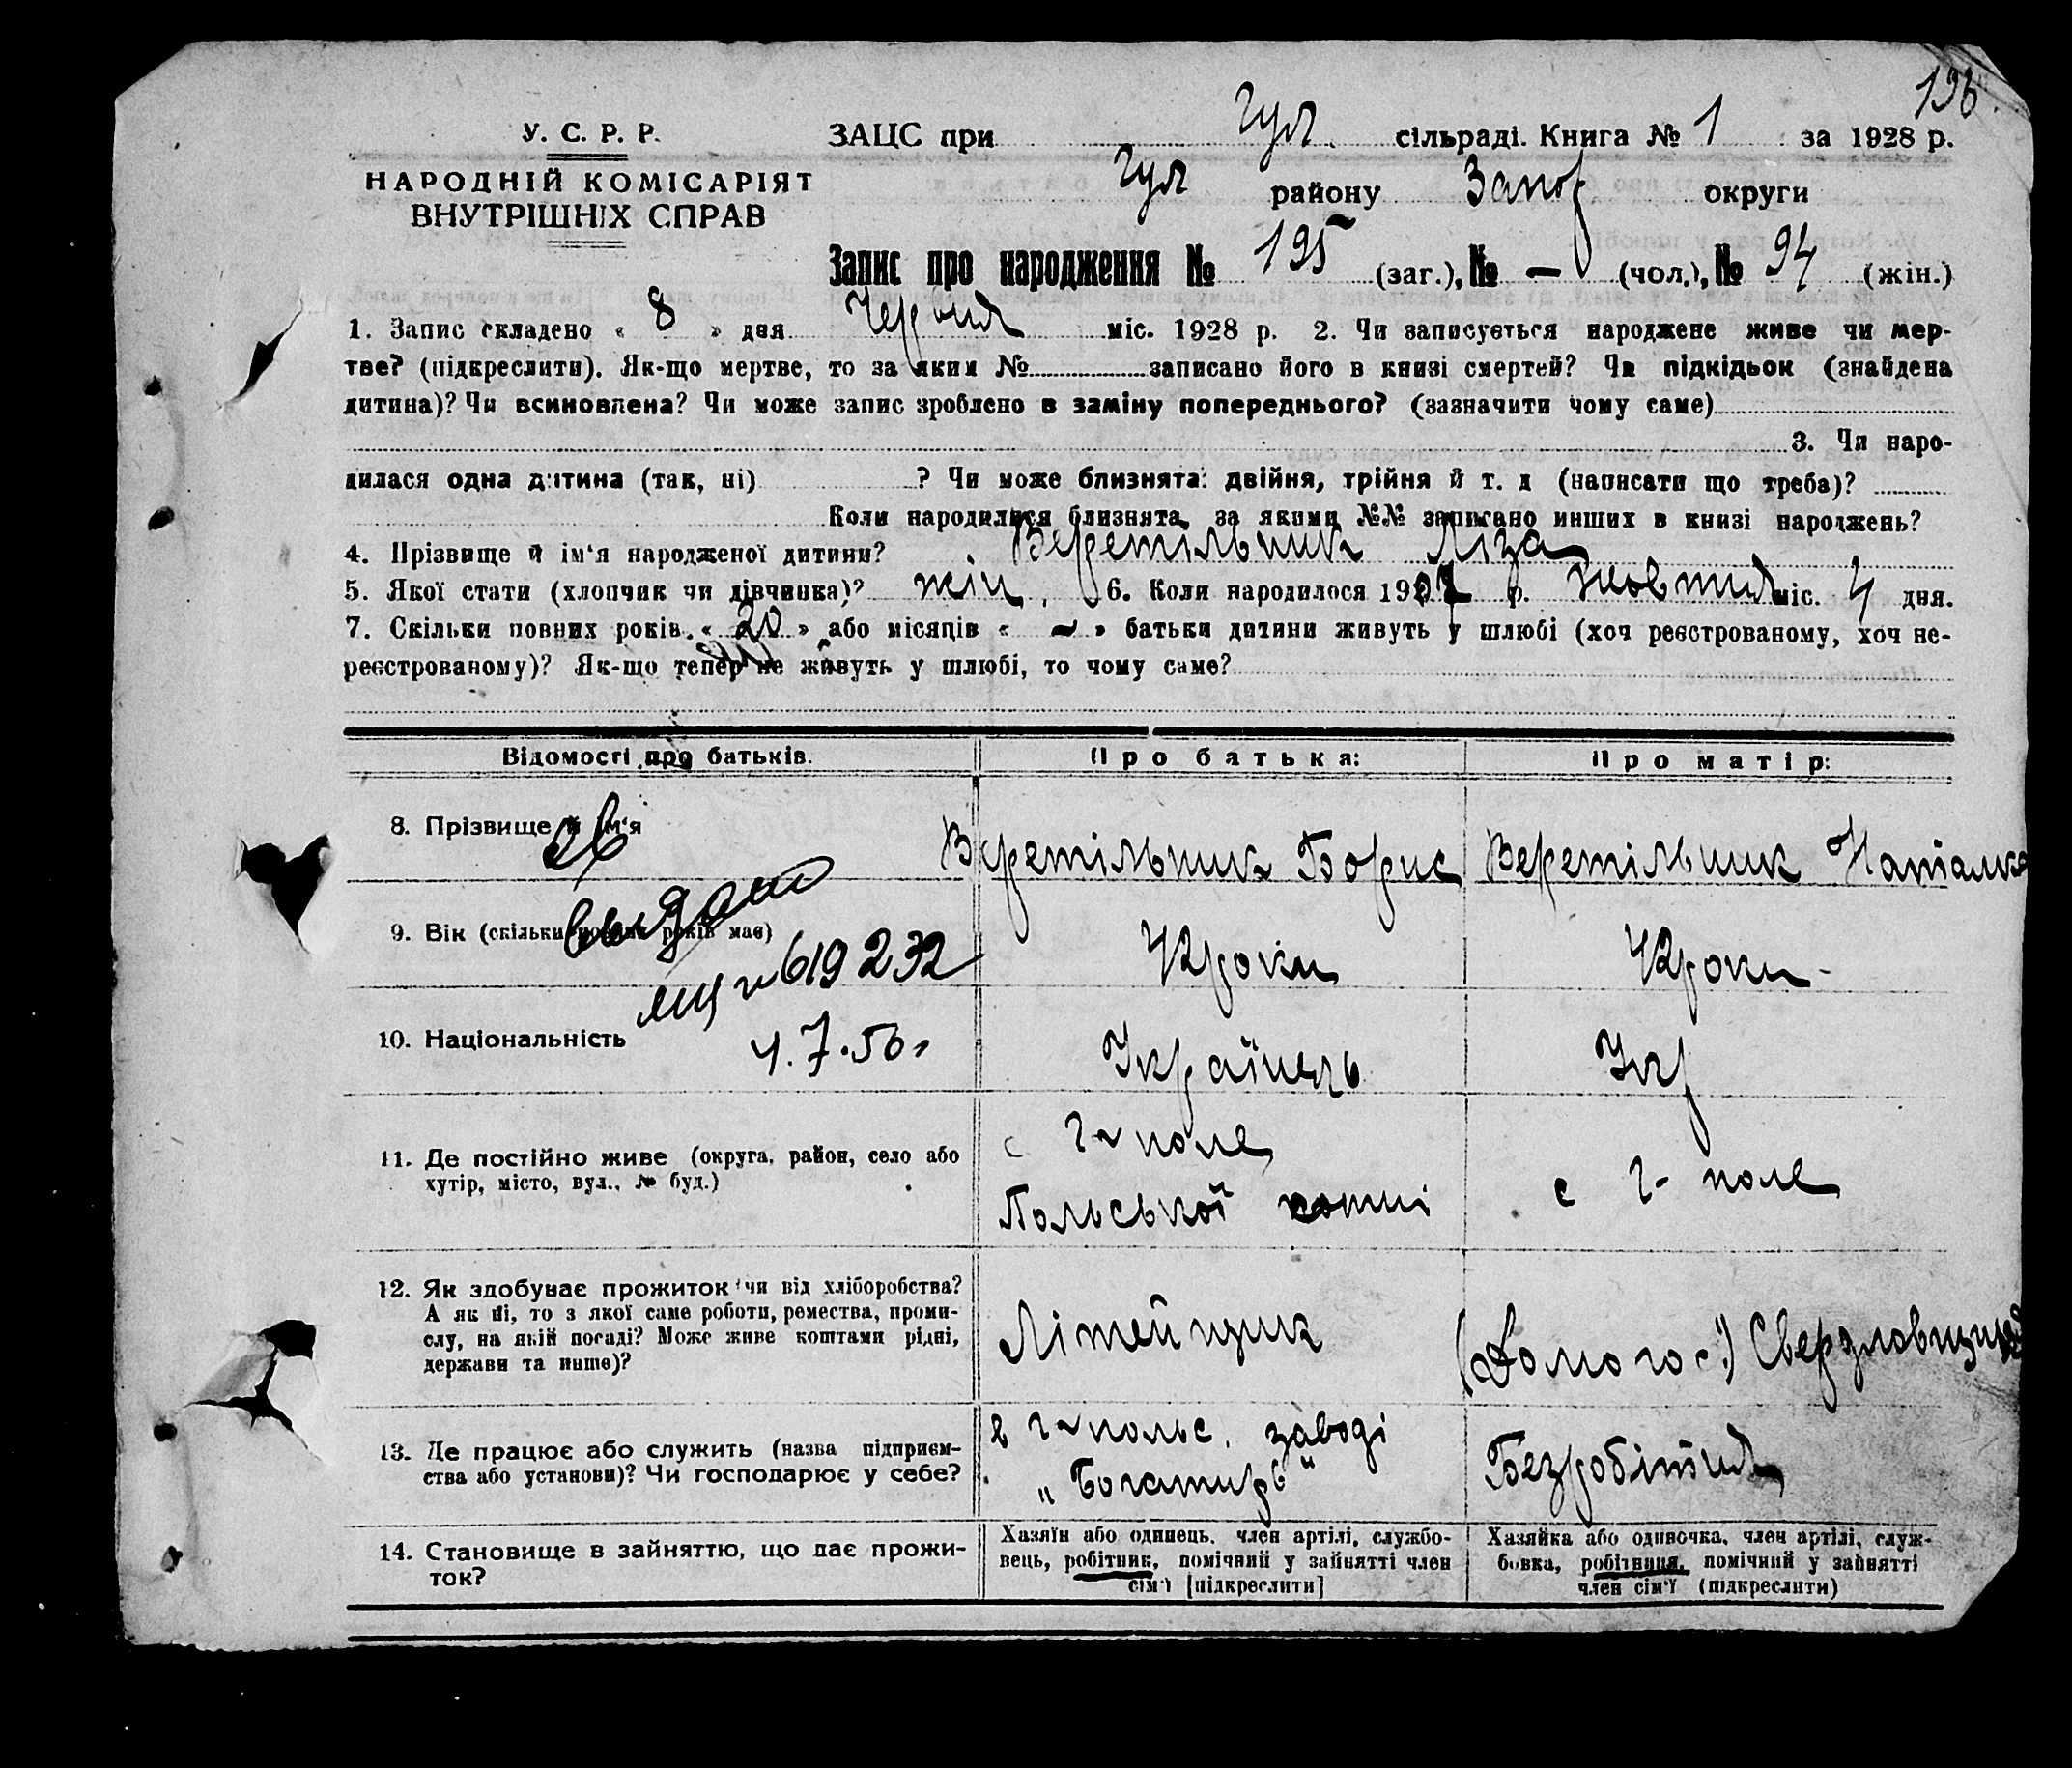 196.
У. С. Р. Р.
НАРОДНІЙ КОМІСАРІЯТ
ВНУТРІШНІХ СПРАВ
ЗАЦС при Гул. сільраді. Книга № 1 за 1928 р.
Гул району Запор округи
Запис про народження № 195 (заг.), № — (чол.), № 94 (жін.)
1. Запис складено « 8 » дня Червня міс. 1928 р. 2. Чи записується народжене живе чи мер-
тве? (підкреслити). Як-що мертве, то за яким № записано його в книзі смертей? Чи підкідьок (знайдена
дитина)? Чи всиновлена? Чи може запис зроблено в заміну попереднього? (зазначити чому саме)
3. Чи наро-
дилася одна дитина (так, ні) ? Чи може близнята: двійня, трійня й т. д (написати що треба)?
Коли народилися близнята, за якими №№ записано инших в книзі народжень?
4. Прізвище й ім'я народженої дитини? Веретільник Ліза
5. Якої стати (хлопчик чи дівчинка)? жін. 6. Коли народилося 1927 р. Жовтня міс. 4 дня.
7. Скільки повних років « 20 » або місяців « – » батьки дитини живуть у шлюбі (хоч реєстрованому, хоч не-
реєстрованому)? Як-що тепер не живуть у шлюбі, то чому саме?
Відомості про батьків. Про батька: Про матір:
8. Прізвище й ім'я Веретільник Борис Веретільник Наталка
9. Вік (скільки повних років має) роки роки
выдано
619232
10. Національність Українець Укр
4.7.56г
11. Де постійно живе (округа, район, село або
хутір, місто, вул., № буд.)
с Г-поле
Польської сотні
с Г-поле
12. Як здобуває прожиток: чи від хліборобства?
А як ні, то з якої саме роботи, ремества, проми-
слу, на якій посаді? Може живе коштами рідні,
держави та инше)?
Літейщик
(Домогос.)
13. Де працює або служить (назва підприєм-
ства або установи)? Чи господарює у себе?
в Г-польс. заводі
„Богатирь"
Безробітня
14. Становище в зайняттю, що дає прожи-
ток?
Хазяїн або одинець, член артілі, службо-
вець, робітник, помічний у зайнятті член
сім'ї [підкреслити]
Хазяйка або одиночка, член артілі, служ-
бовка, робітниця, помічний у зайнятті
член сім'ї (підкреслити)